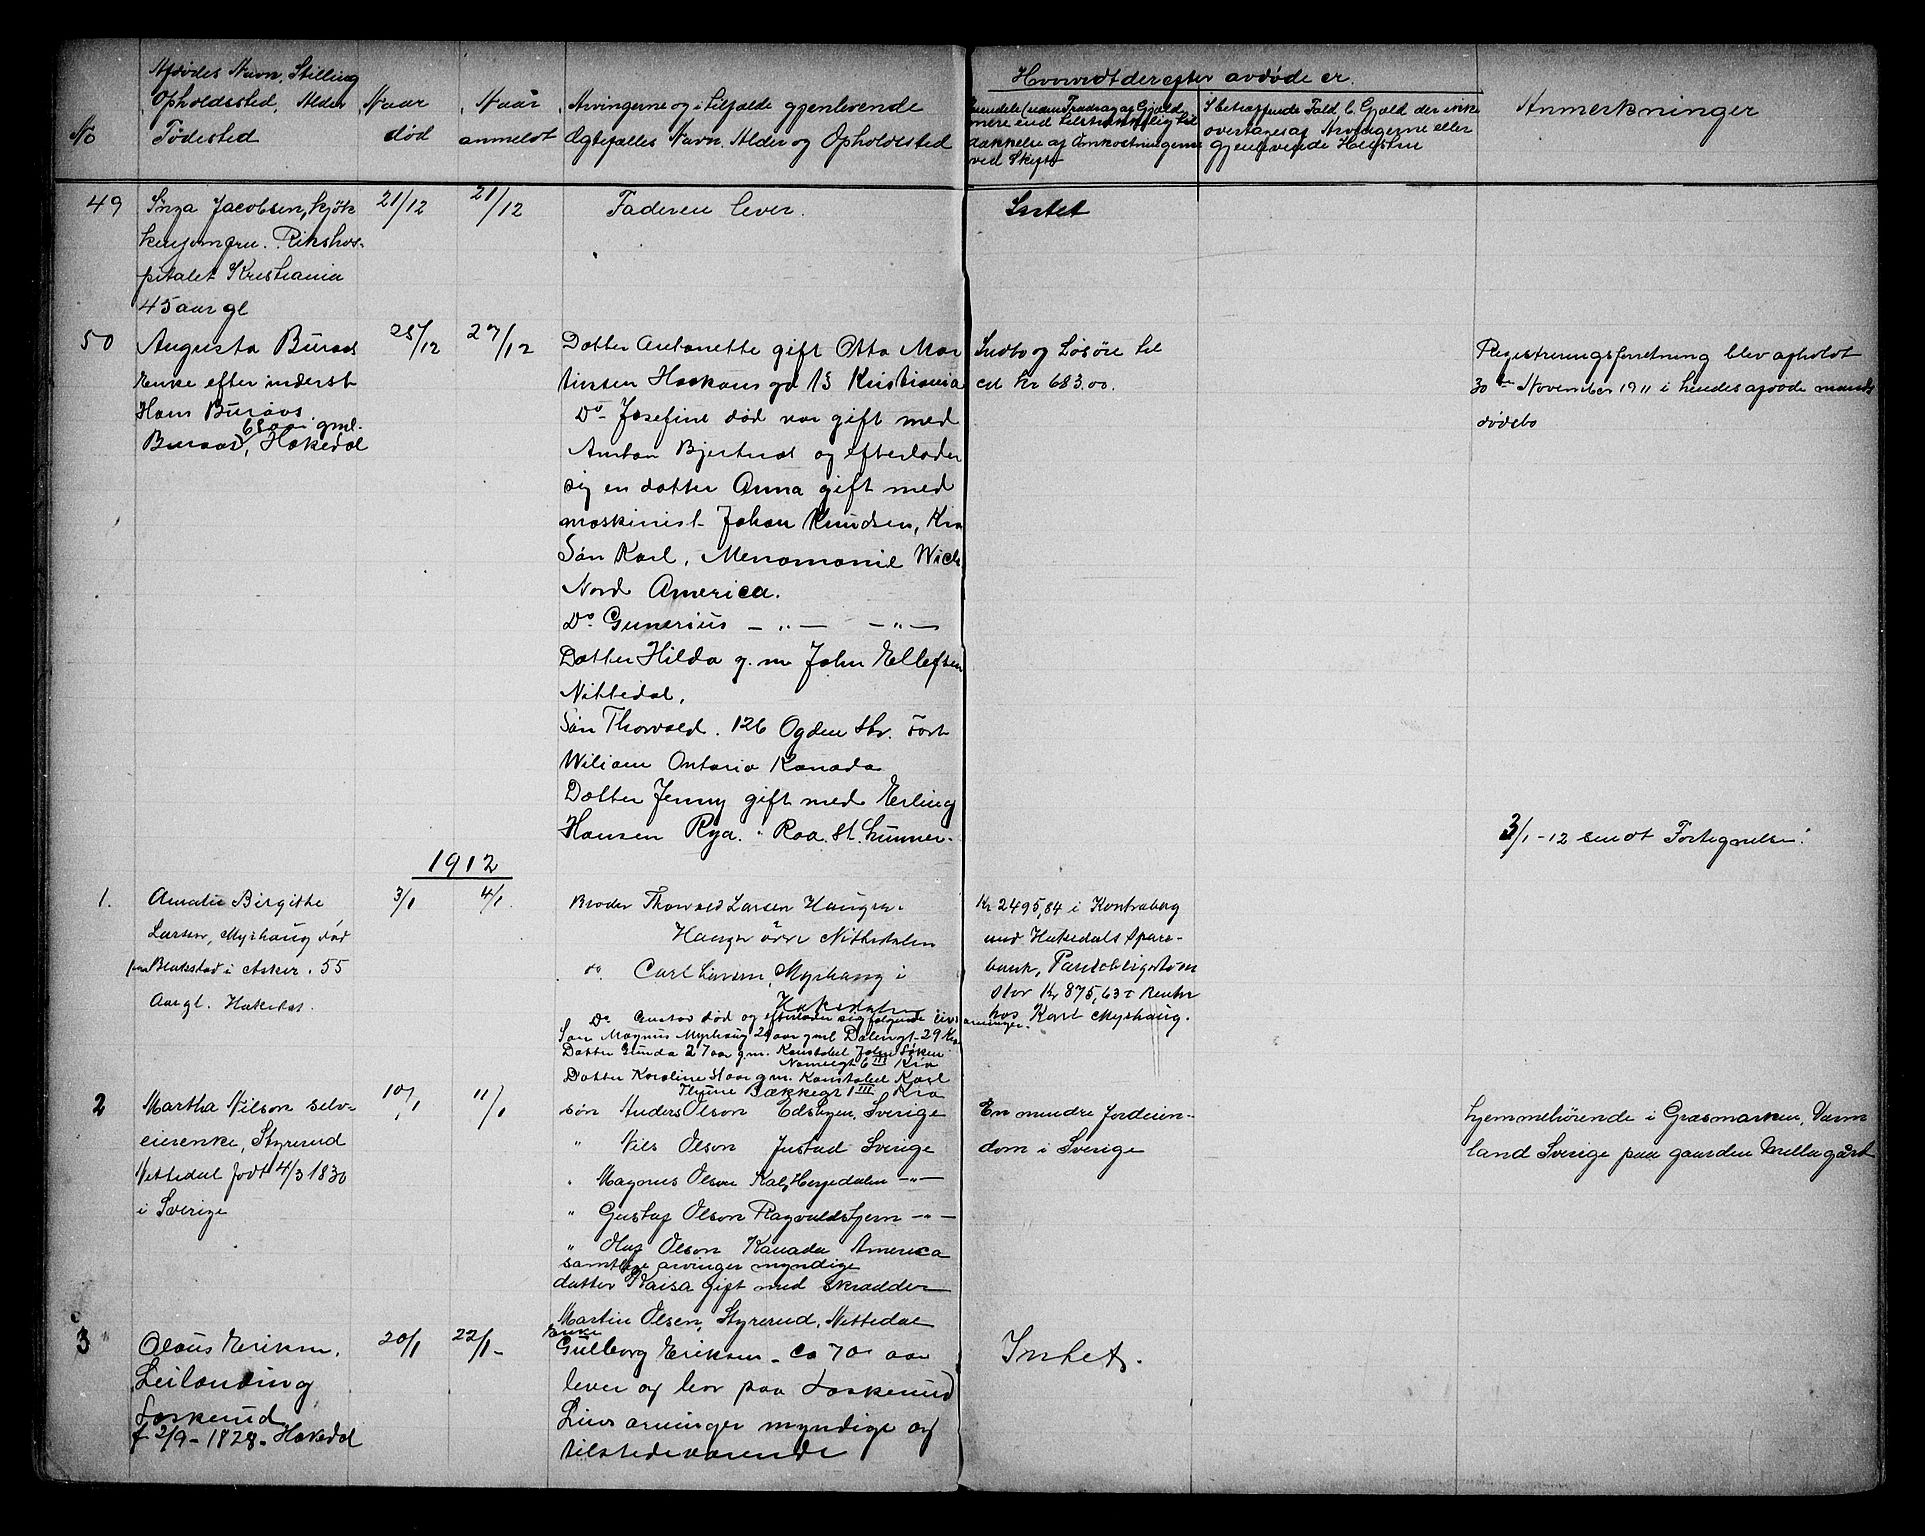 No
Afdødes Navn, Stilling
Opholdssted, Alder
Fødested
Naar
død
Naar
anmeldt
Arvingerne og i tilfælde gjenlevende
Ægtefælles Navn, Alder og Opholdssted
Hvorvidt der efter avdøde er.
Eiendele (uden Fradrag af Gjæld
mere end tilstrækkelig til
dækkelse af Omkostningerne
ved Skifte
I betræffende Fald b. Gjæld der ikke
overtages af Arvingerne eller
gjenlevende
Anmerkninger
49
Inga Jacobsen, kjøk
kenjomfru. Rikshos-
pitalet Kristiania
45 aar gl
21/12
21/12
Faderen lever.
Intet
50
Augusta Buraas
Enke efter inderst
Hans Buraas.
68 aar gml.
Buraas, Hakedal
25/12
27/12
Datter Antonette gift Otto Mar
tinsen Haakons gd 13 Kristiania
Do Josefine død var gift med
Anton Bjertnæs og efterlader
sig en datter Anna gift med
maskinist Johan Knudsen, Kra
Søn Karl, Menomonie Wich
Nord America.
Do Gunerius — „ — — „ —
Datter Hilda g. m John Ellefsen
Nittedal,
Søn Thorvald. 126 Ogden Str. Fort
Wiliam Ontario Kanada
Datter Jenny gift med Erling
Hansen Rya. Roa. St. Lunner.
Indbo og Løsøre til
ca kr 683.00.
Registreringsforretning blev afholdt
30te November 1911 i hendes afdøde mands
dødsbo
3/1-12 sendt Fortegnelse.
1912
1.
Amalie Birgithe
Larsen, Myrhaug død
paa Blakstad i Asker. 55
Aar gl. Hakedal
3/1
4/1.
Broder Thorvald Larsen Haugen
Hauger øvre Nittedalen
do. Carl Larsen, Myrhaug i
Hakedalen
Do Gustav død og efterlader sig følgende livs
arvinger.
Søn Magnus Myrhaug 29 aar gml Dælengt. 29 Kra
Datter Gunda 27 aar g.m. Konstabel John Løken
6 III Kra
Datter Karoline g.m. Konstabel Karl
Thune Bækkegt 1 III Kra
Kr 2495,84 i Kontrabog
med Hakedals Spare-
bank, Pantobligation
stor Kr 875,63 + Renter
hos Karl Myrhaug.
2
Martha Nilson selv-
eierenke, Styrerud
Nittedal født 4/3 1830
i Sverige
10/1
11/1
søn Anders Olson Edsbyen, Sverige
„ Nils Olson Justad Sverige
„ Magnus Olson Kalf Herjedalen — „ —
„ Gustaf Olson Ragvaldstjern — „ —
„ Olaf Olson Kanada America
samtlige arvinger myndige
datter Kaisa gift med skrædder
Martin Olsen, Styrerud, Nittedal
En mindre Jordeien-
dom i Sverige
hjemmehørende i Græsmarken, Værm
land Sverige paa gaarden Mellagård
3
Olaus Eriksen.
Leilænding
Laskerud
f 2/9 - 1828. Hakedal
20/1
22/1 -
Enke
Gulborg Eriksen - Ca 70 aar
lever og bor paa Laskerud
Livsarvinger myndige og
tilstedeværende
Intet.